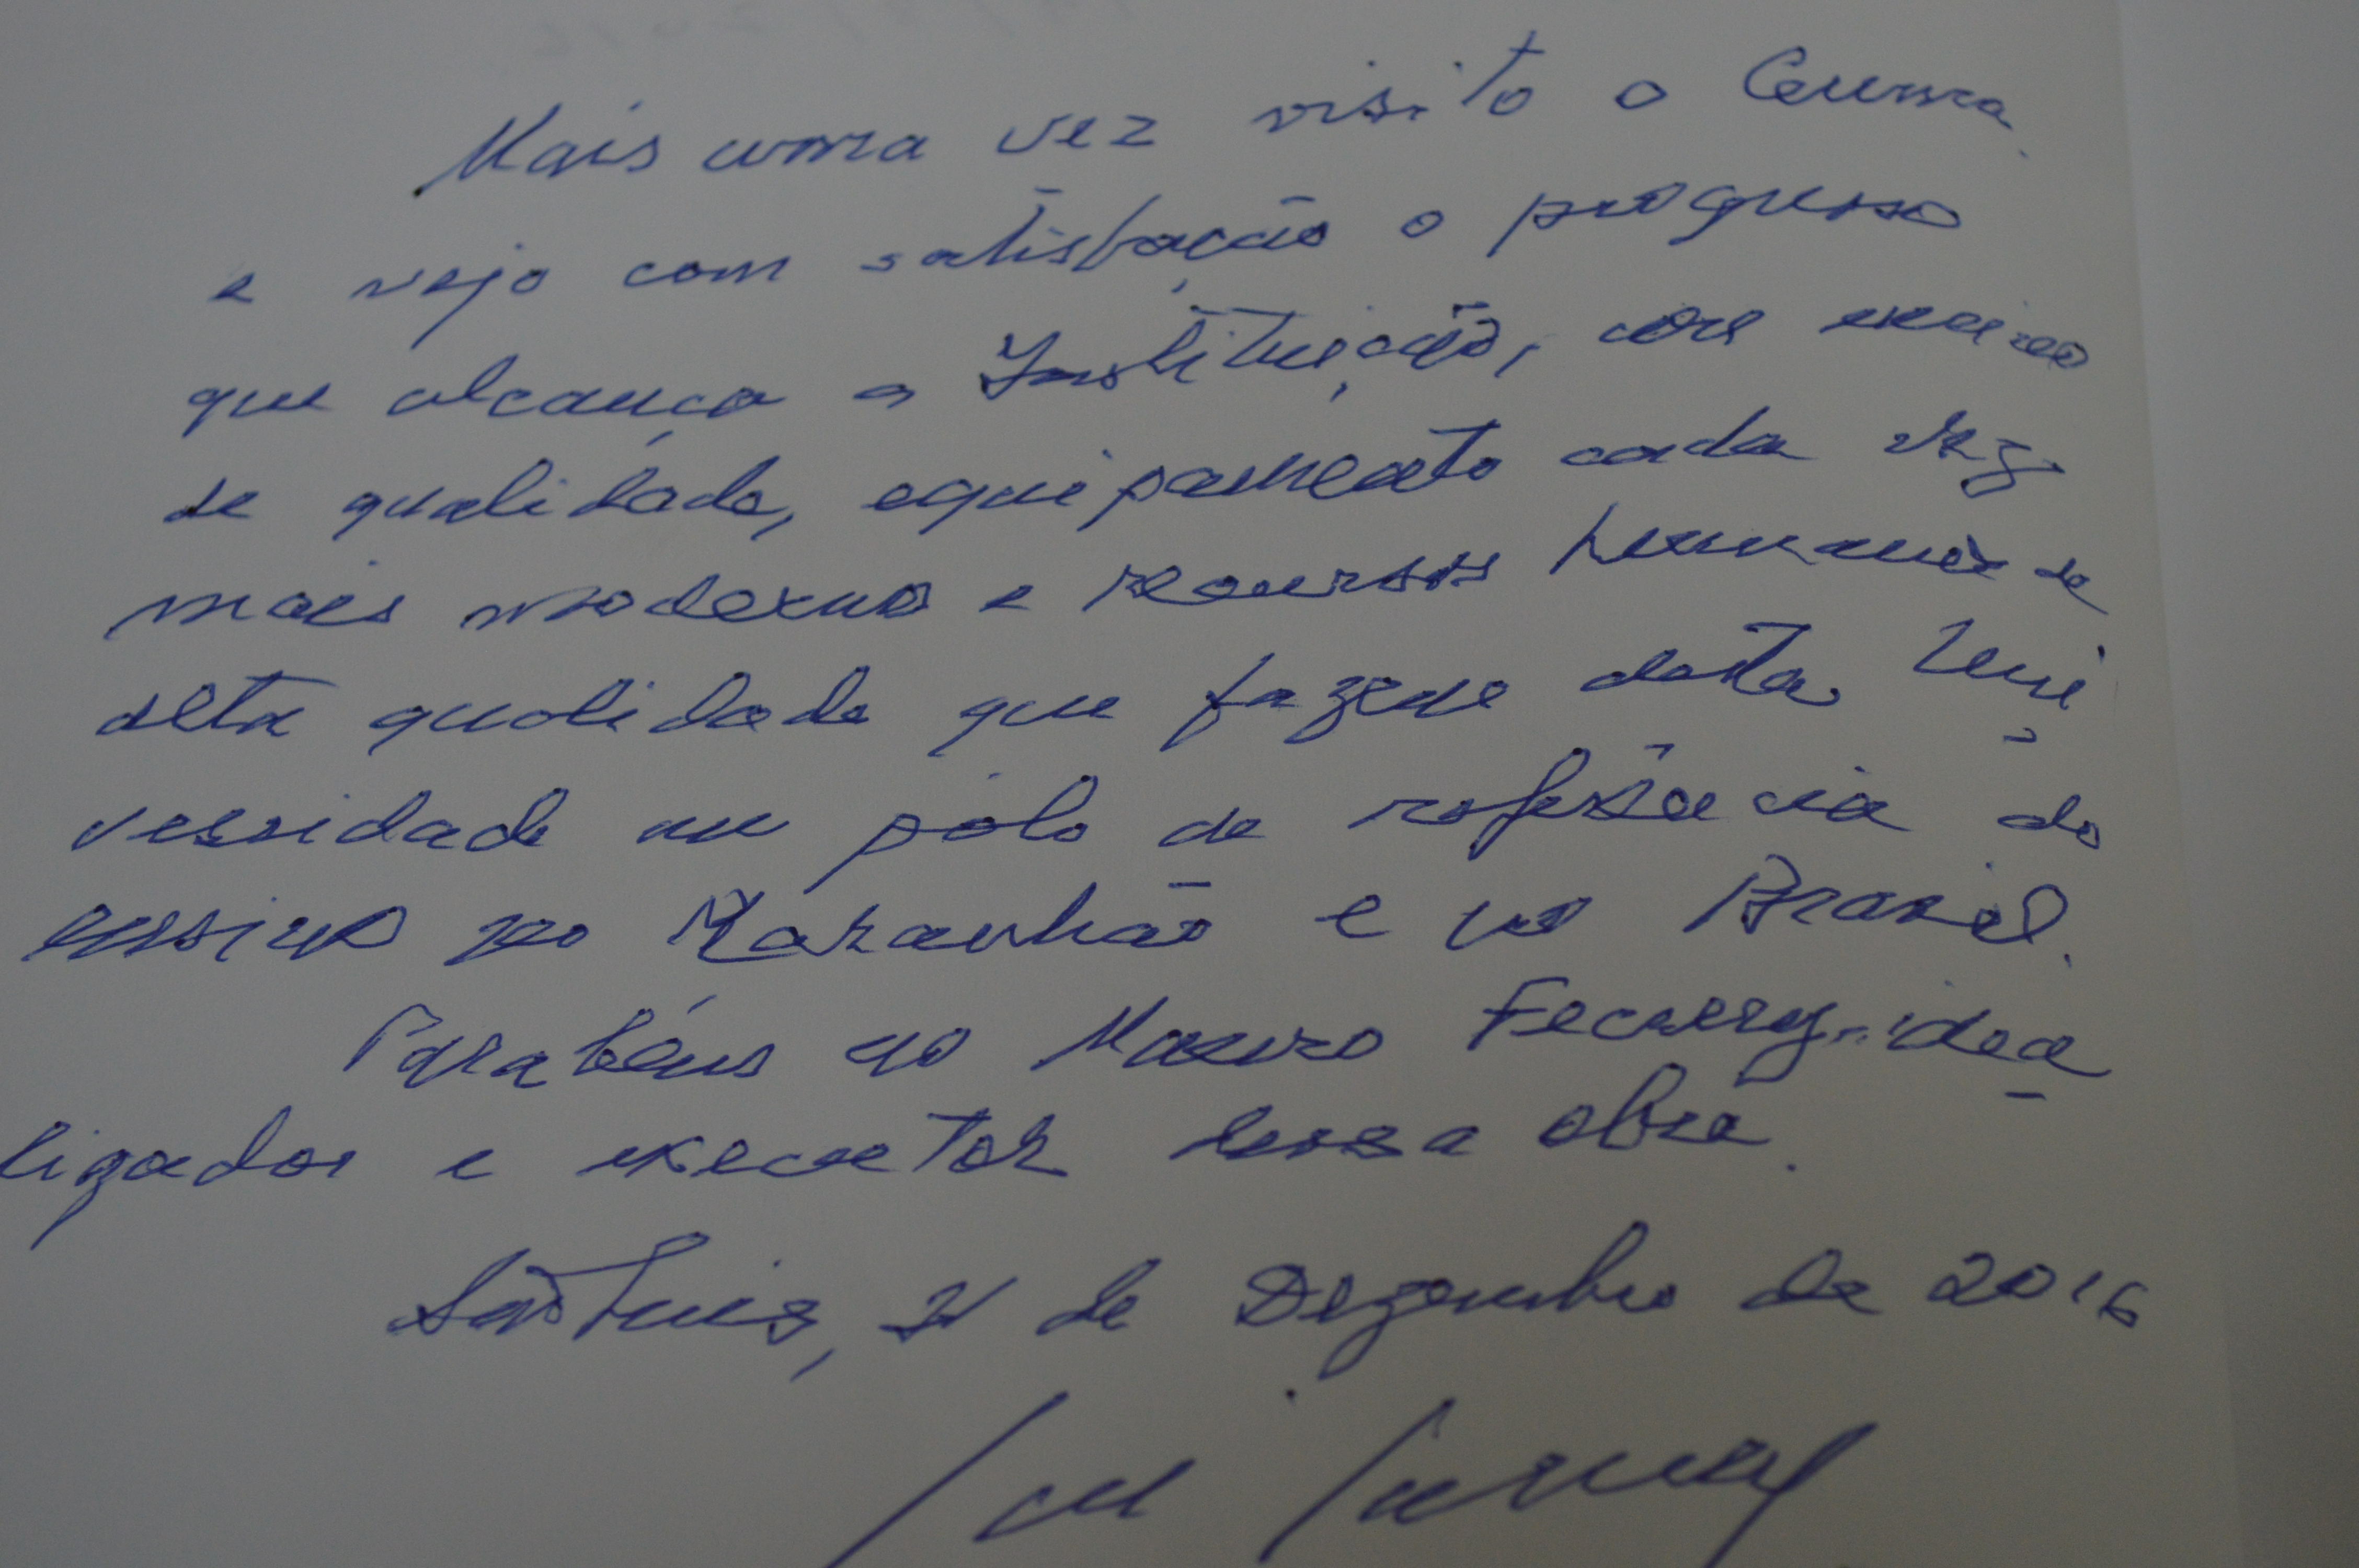 Mais uma vez visito o Ceuma.
e vejo com satisfação o progresso
que alcança a Instituição, com ensino
de qualidade, equipamento cada vez
mais moderno e recursos humanos de
alta qualidade que fazem desta Uni-
versidade um pólo de referência do
ensino no Maranhão e no Brasil.
Parabéns ao Mauro Fecury, idea-
lizador e executor dessa obra.
São Luis, de Dezembro de 2016
José Sarney